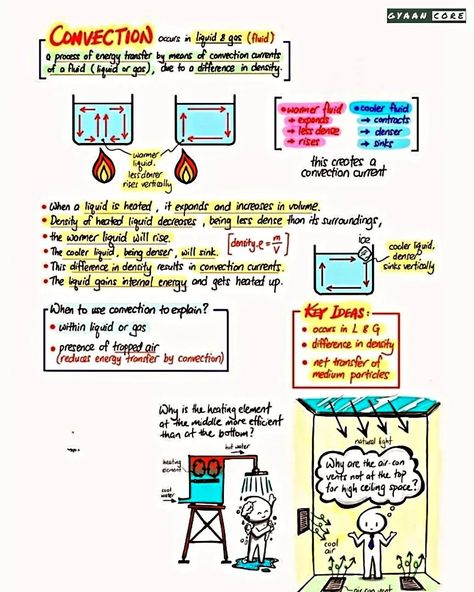 GYAAN CORE
CONVECTION occurs in liquid & gas (fluid)
a process of energy transfer by means of convection currents
of a fluid (liquid or gas), due to a difference in density.
warmer
liquid,
less denser
rises vertically
• warmer fluid
→ expands
→ less dense
→ rises
• cooler fluid
→ contracts
→ denser
→ sinks
this creates a
convection current
• When a liquid is heated, it expands and increases in volume.
• Density of heated liquid decreases, being less dense than its surroundings,
• the warmer liquid will rise. [density, ρ = m/V]
• The cooler liquid, being denser, will sink.
• This difference in density results in convection currents.
• The liquid gains internal energy and gets heated up.
ice
cooler liquid,
denser
sinks vertically
When to use convection to explain?
• within liquid or gas
• presence of trapped air
(reduces energy transfer by convection)
KEY IDEAS:
• occurs in L & G
• difference in density
• net transfer of
medium particles
Why is the heating element
at the middle more efficient
than at the bottom?
hot water
heating
element
cold
water
natural light
Why are the air-con
vents not at the top
for high ceiling space?
cool
air
air-con vent